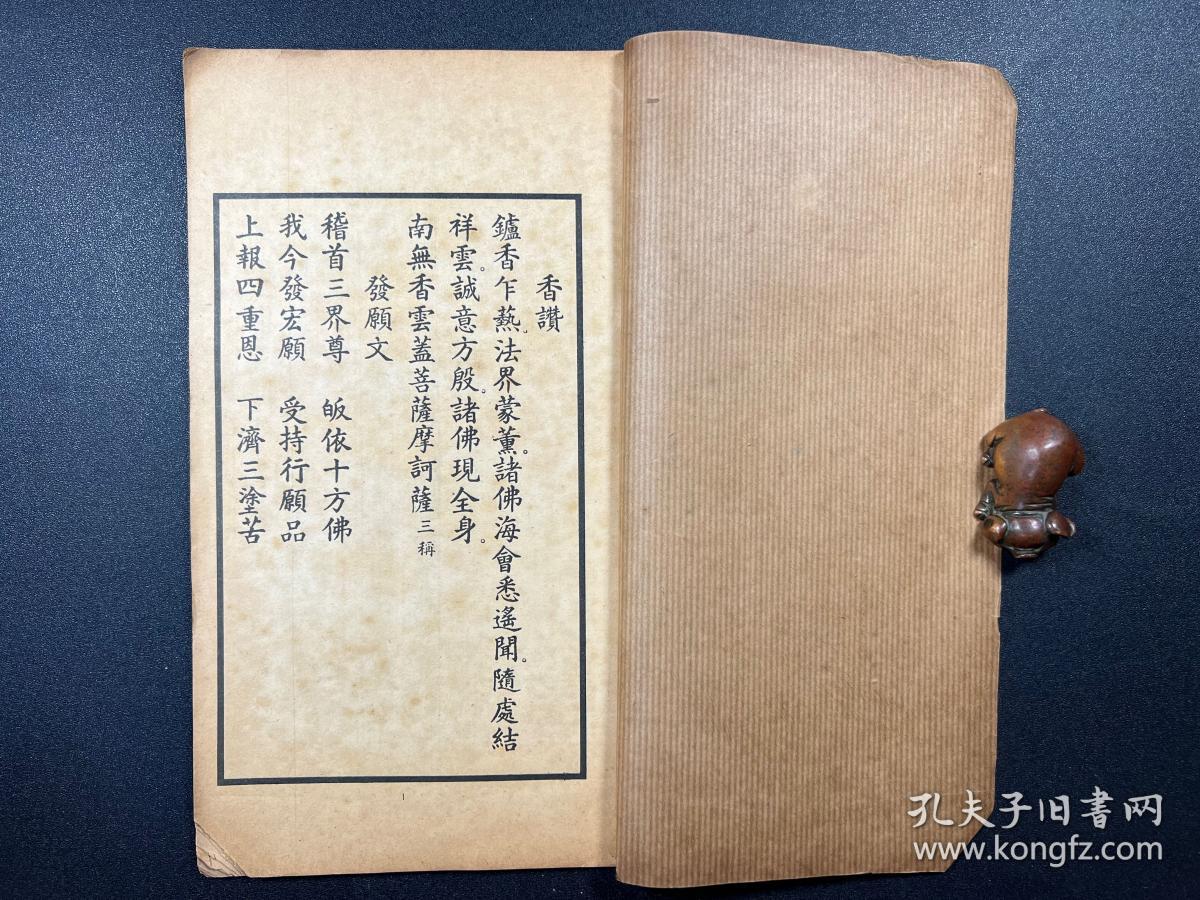 香讚
鑪香乍爇。法界蒙薰。諸佛海會悉遙聞。隨處結
祥雲。誠意方殷。諸佛現全身。
南無香雲蓋菩薩摩訶薩 三稱
發願文
稽首三界尊　皈依十方佛
我今發宏願　受持行願品
上報四重恩　下濟三塗苦
1
孔夫子旧書网
www.kongfz.com